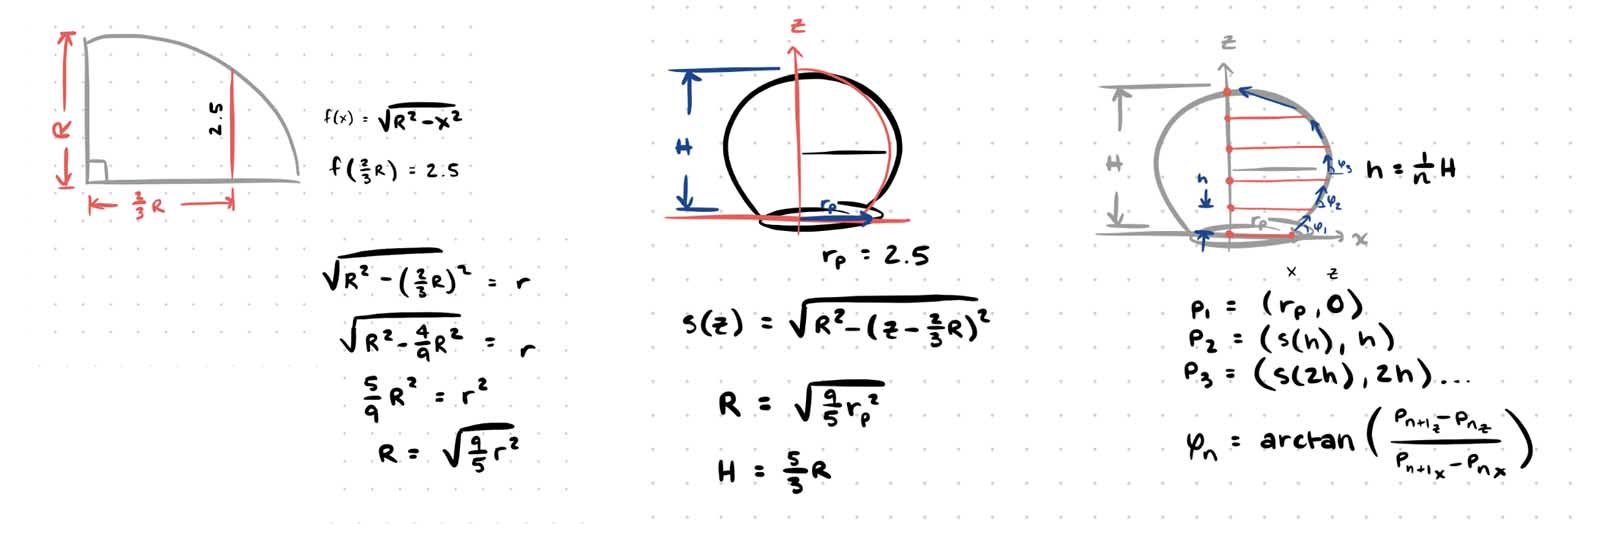 R
2.5
2/3 R
f(x) = √(R² - x²)
f(2/3 R) = 2.5
√(R² - (2/3 R)²) = r
√(R² - 4/9 R²) = r
5/9 R² = r²
R = √(9/5 r²)
z
H
rp
rp = 2.5
s(z) = √(R² - (z - 2/3 R)²)
R = √(9/5 rp²)
H = 5/3 R
z
H
h
φ3
φ2
φ1
rp
x
h = 1/n H
x z
P1 = (rp, 0)
P2 = (s(h), h)
P3 = (s(2h), 2h)...
φn = arctan((Pn+1z - Pnz)/(Pn+1x - Pnx))